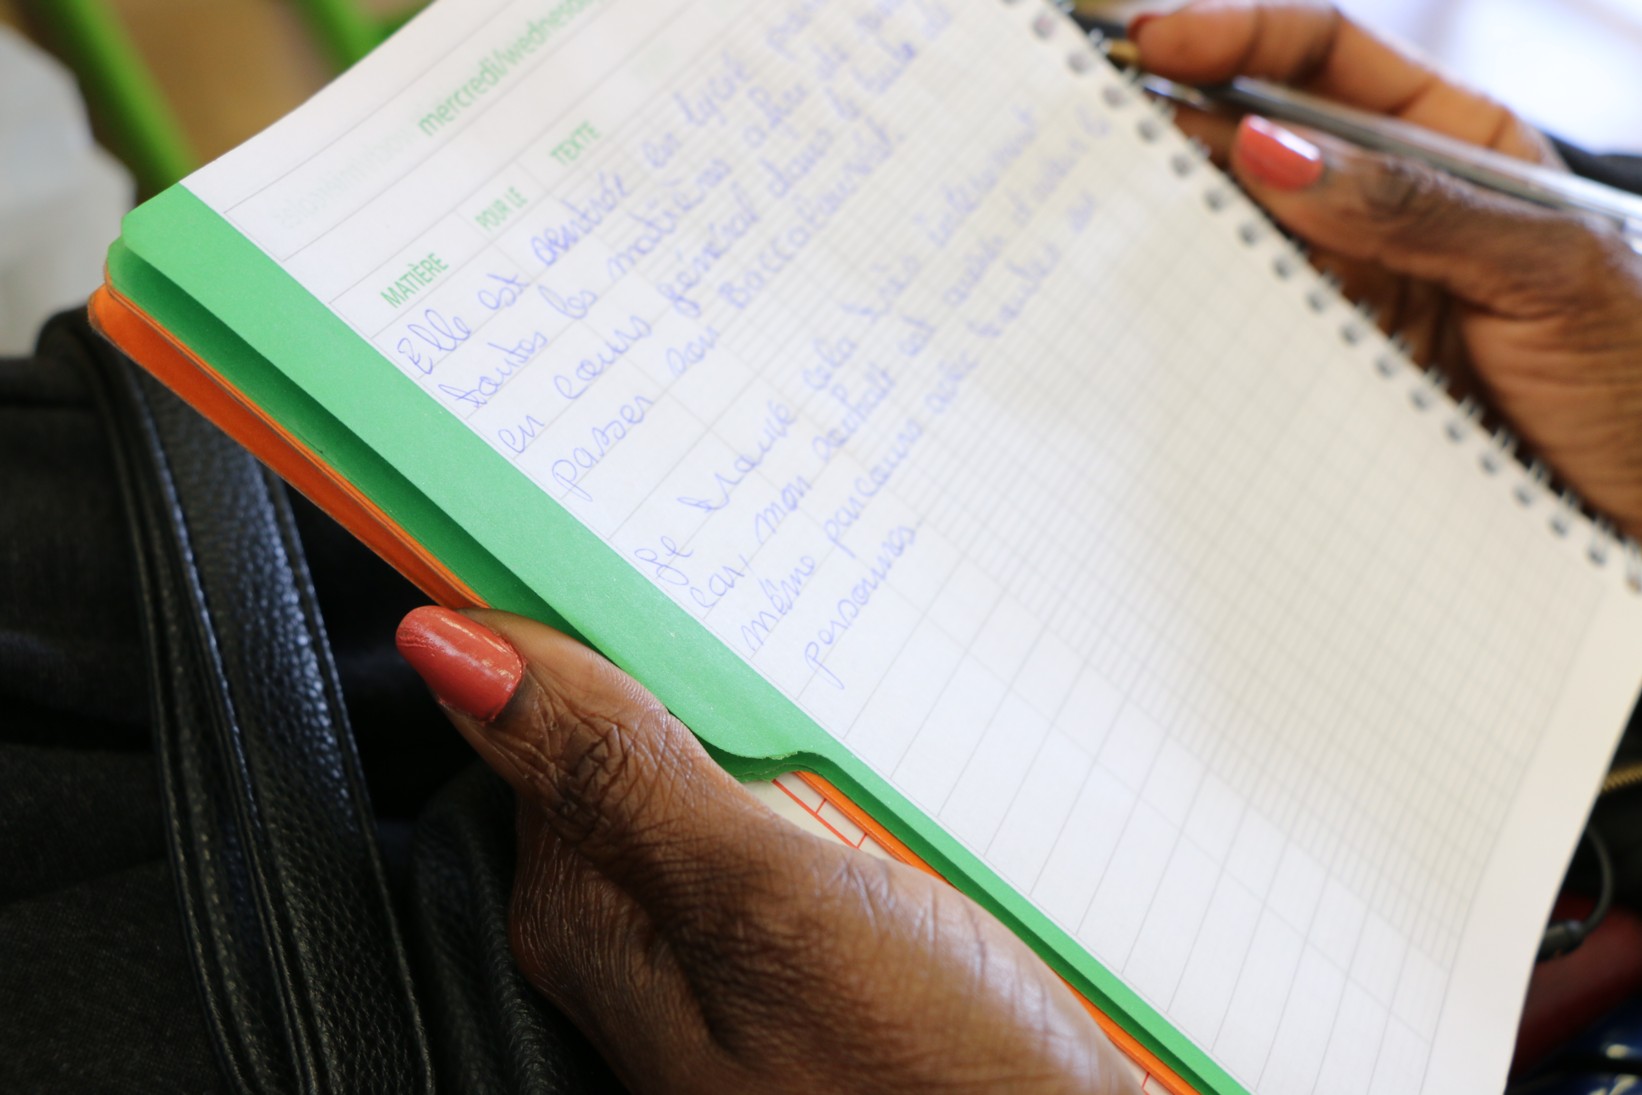 mercredi/wednesday
MATIÈRE POUR LE TEXTE
Elle est rentrée au lycée pour
toutes les matières afin de
en cours général dans le but de
passer son Baccalauréat.
Je trouve cela très intéressant
car, mon souhait est aussi d'avoir le
même parcours avec toutes ses
personnes